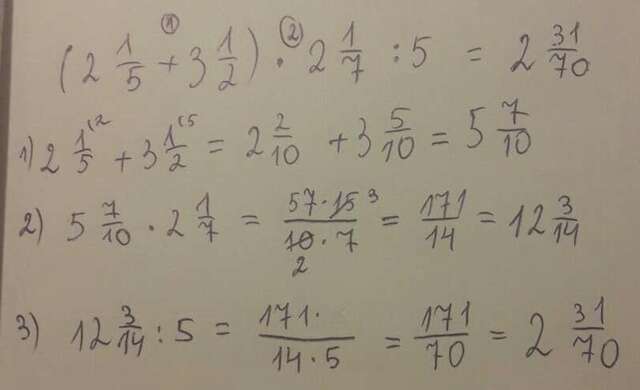 (2 1/5 +① 3 1/2) ·② 2 1/7 : 5 = 2 31/70
1) 2 1/5 (2 + 3 1/2 (5 = 2 2/10 + 3 5/10 = 5 7/10
2) 5 7/10 · 2 1/7 = 57·15 3/10·7 2 = 171/14 = 12 3/14
3) 12 3/14 : 5 = 171·/14·5 = 171/70 = 2 31/70